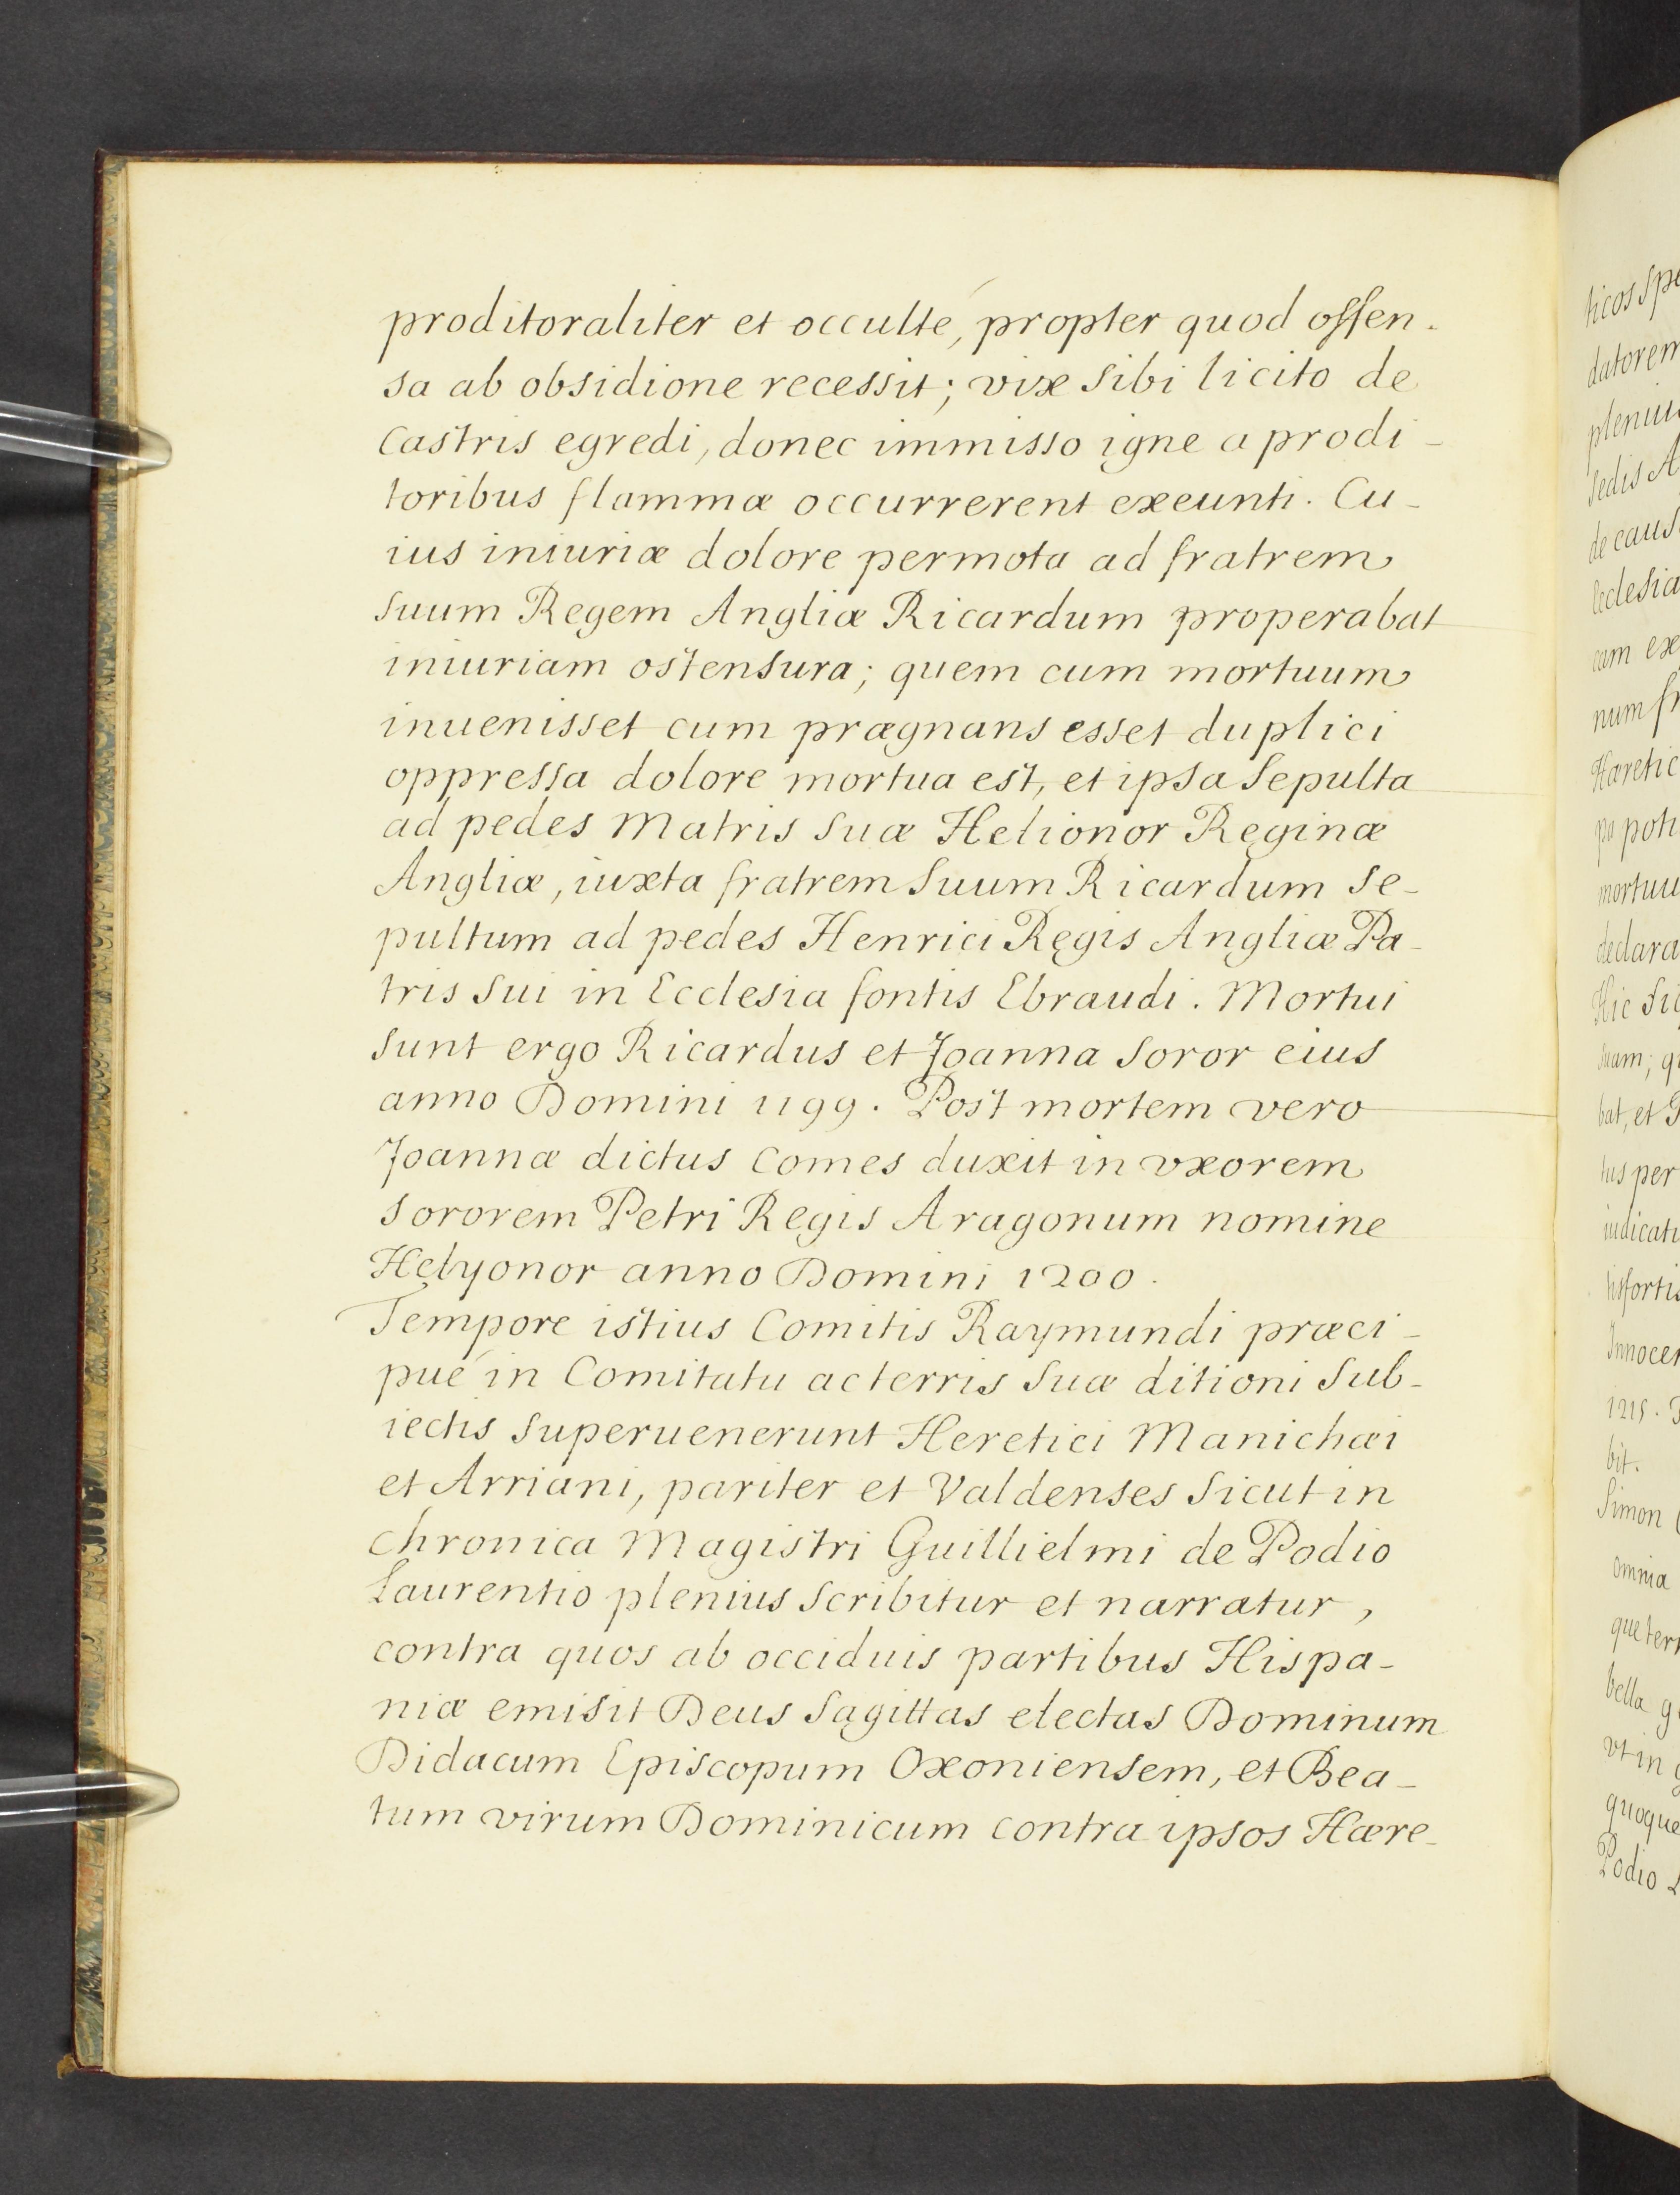 proditoraliter et occulté, propter quod offen-
sa ab obsidione recessit; vix sibi licito de
Castris egredi, donec immisso igne a prodi-
toribus flammæ occurrerent exeunti. Cu-
ius iniuriæ dolore permota ad fratrem
suum Regem Angliæ Ricardum properabat
iniuriam ostensura; quem cum mortuum
inuenisset cum prægnans esset duplici
oppressa dolore mortua est, et ipsa sepulta
ad pedes Matris suæ Helionor Reginæ
Angliæ, iuxta fratrem suum Ricardum se-
pultum ad pedes Henrici Regis Angliæ Pa-
tris sui in Ecclesia fontis Ebraudi. Mortui
sunt ergo Ricardus et Joanna soror eius
anno Domini 1199. Post mortem vero
Joannæ dictus Comes duxit in vxorem
sororem Petri Regis Aragonum nomine
Helyonor anno Domini 1200.
Tempore istius Comitis Raymundi præci-
pué in Comitatu ac terris suæ ditioni sub-
iectis superuenerunt Heretici Manichæi
et Arriani, pariter et Valdenses sicut in
chronica Magistri Guillielmi de Podio
Laurentio plenius scribitur et narratur,
contra quos ab occiduis partibus Hispa-
niæ emisit Deus sagittas electas Dominum
Didacum Episcopum Oxoniensem, et Bea-
tum virum Dominicum contra ipsos Hære-
ticos
datorem
sedis
de
num
mortuu
declara
Hic
suam;
bat, et
tus per
1215.
bit.
Simon
omnia
bella
vt in
quoque
Podio